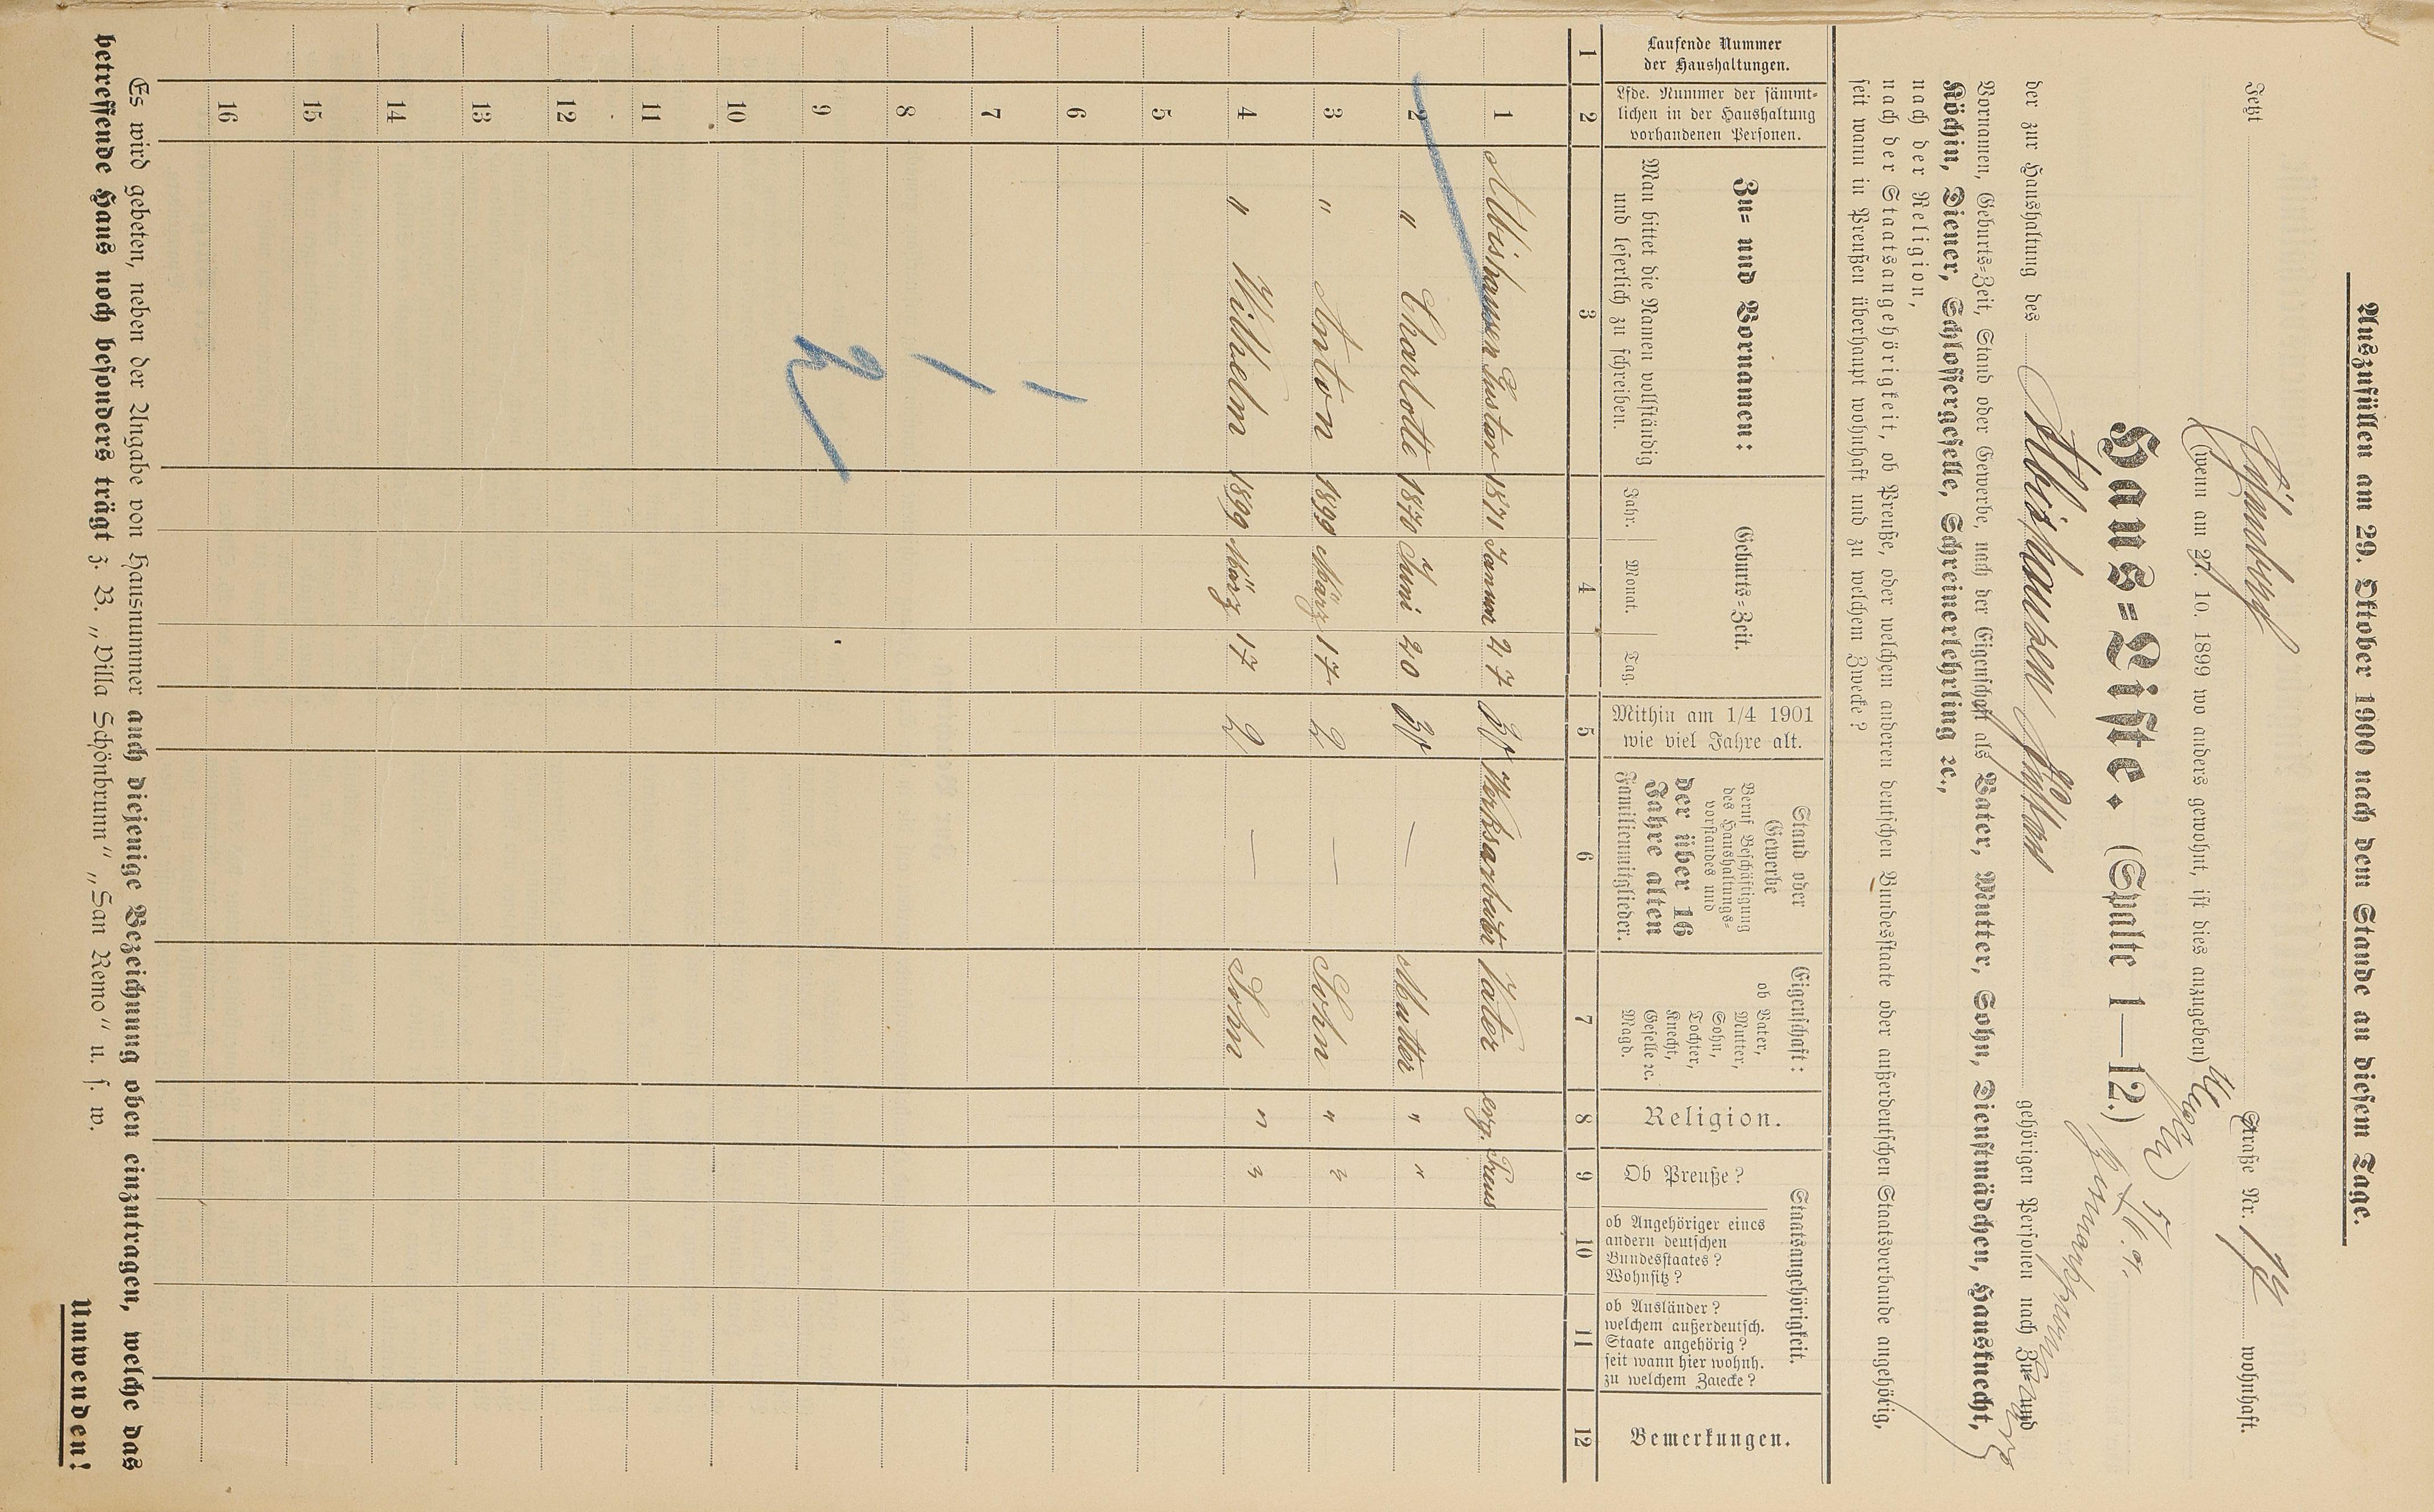 Auszufüllen am 29. Oktober 1900 nach dem Stande an diesem Tage.
Jetzt Straße Nr. 17 wohnhaft.
(wenn am 27. 10. 1899 wo anders gewohnt, ist dies anzugeben)
Haus-Liste. (Spalte 1—12.)
der zur Haushaltung des Albishausen Gustav gehörigen Personen nach Zu- und
Vornamen, Geburts-Zeit, Stand oder Gewerbe, nach der Eigenschaft als Vater, Mutter, Sohn, Dienstmädchen, Hausknecht,
Köchin, Diener, Schlossergeselle, Schreinerlehrling ꝛc.,
nach der Religion,
nach der Staatsangehörigkeit, ob Preuße, oder welchem anderen deutschen Bundesstaate oder außerdeutschen Staatsverbande angehörig,
seit wann in Preußen überhaupt wohnhaft und zu welchem Zwecke?
Laufende Nummer der Haushaltungen.
Lfde. Nummer der sämmtlichen in der Haushaltung vorhandenen Personen.
Zu- und Vornamen:
Man bittet die Namen vollständig
und leserlich zu schreiben.
Geburts-Zeit.
Jahr. Monat. Tag.
Mithin am 1/4 1901
wie viel Jahre alt.
Stand oder
Gewerbe
Beruf Beschäftigung
des Haushaltungs-
vorstandes und
der über 16
Jahre alten
Familienmitglieder.
Eigenschaft:
ob Vater,
Mutter,
Sohn,
Tochter,
Knecht,
Geselle ꝛc.
Magd.
Religion.
Staatsangehörigkeit.
Ob Preuße?
ob Angehöriger eines
andern deutschen
Bundesstaates?
Wohnsitz?
ob Ausländer?
welchem außerdeutsch.
Staate angehörig?
seit wann hier wohnh.
zu welchem Zwecke?
Bemerkungen.
1 2 3 4 5 6 7 8 9 10 11 12
1 Albishausen Gustav 1871 Januar 27 30 Werksarbeiter Vater evg. Preus
2 " Charlotte 1870 Juni 20 30 — Mutter " "
3 " Anton 1899 März 17 2 — Sohn " "
4 " Wilhelm 1899 März 17 2 — Sohn " "
5
6
7
8
9
10
11
12
13
14
15
16
Es wird gebeten, neben der Angabe von Hausnummer auch diejenige Bezeichnung oben einzutragen, welche das
betreffende Haus noch besonders trägt z. B. „Villa Schönbrunn“ „San Remo“ u. s. w.
Umwenden!